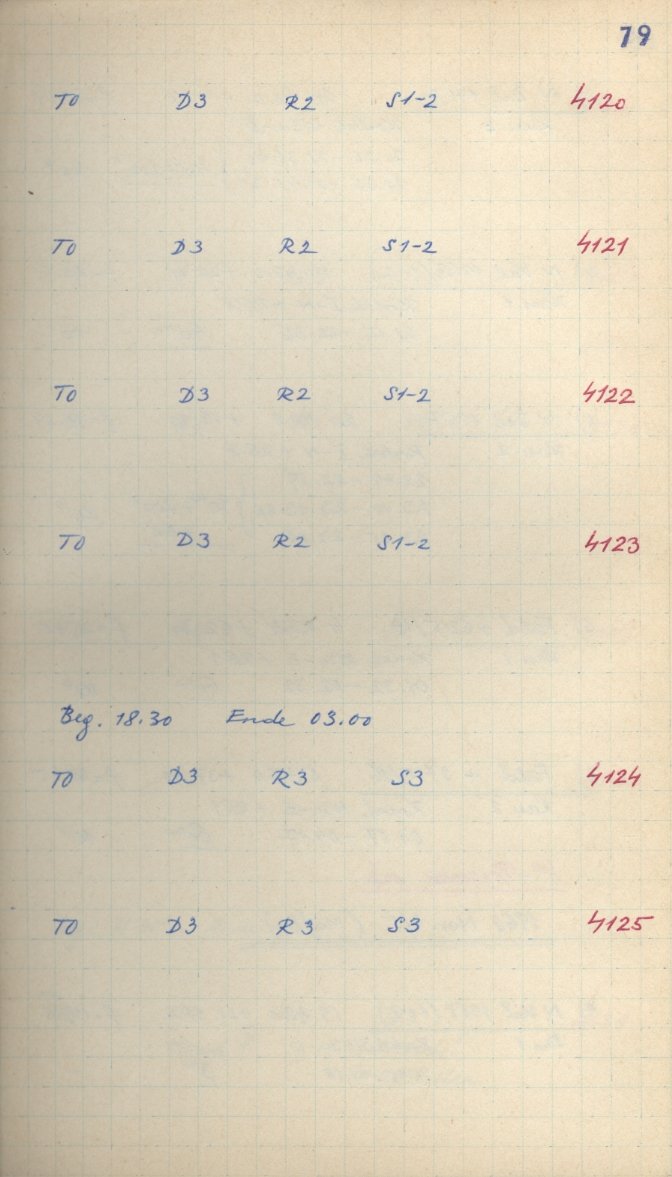 79
T0 D3 R2 S1-2 4120
T0 D3 R2 S1-2 4121
T0 D3 R2 S1-2 4122
T0 D3 R2 S1-2 4123
Beg. 18.30 Ende 03.00
T0 D3 R3 S3 4124
T0 D3 R3 S3 4125